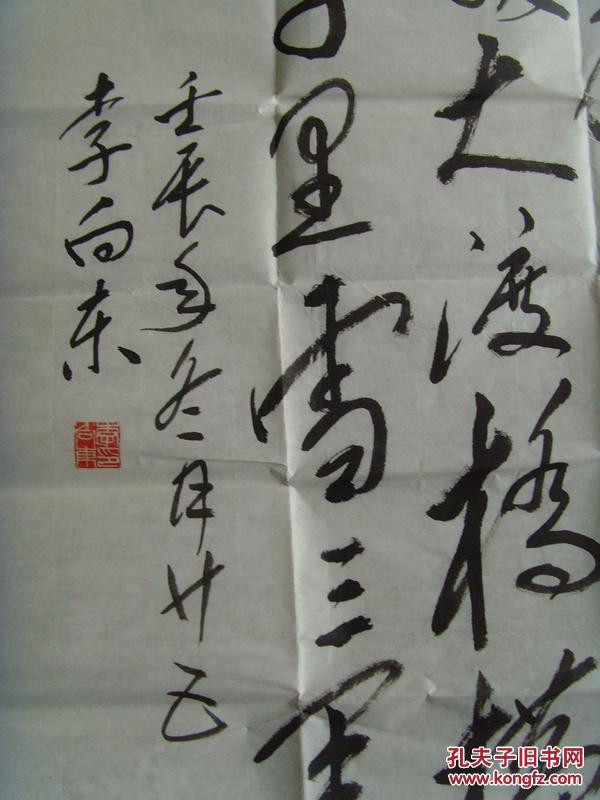 大渡橋横
千里雪三军
壬辰年冬月廿五
李向东
孔夫子旧书网
www.kongfz.com